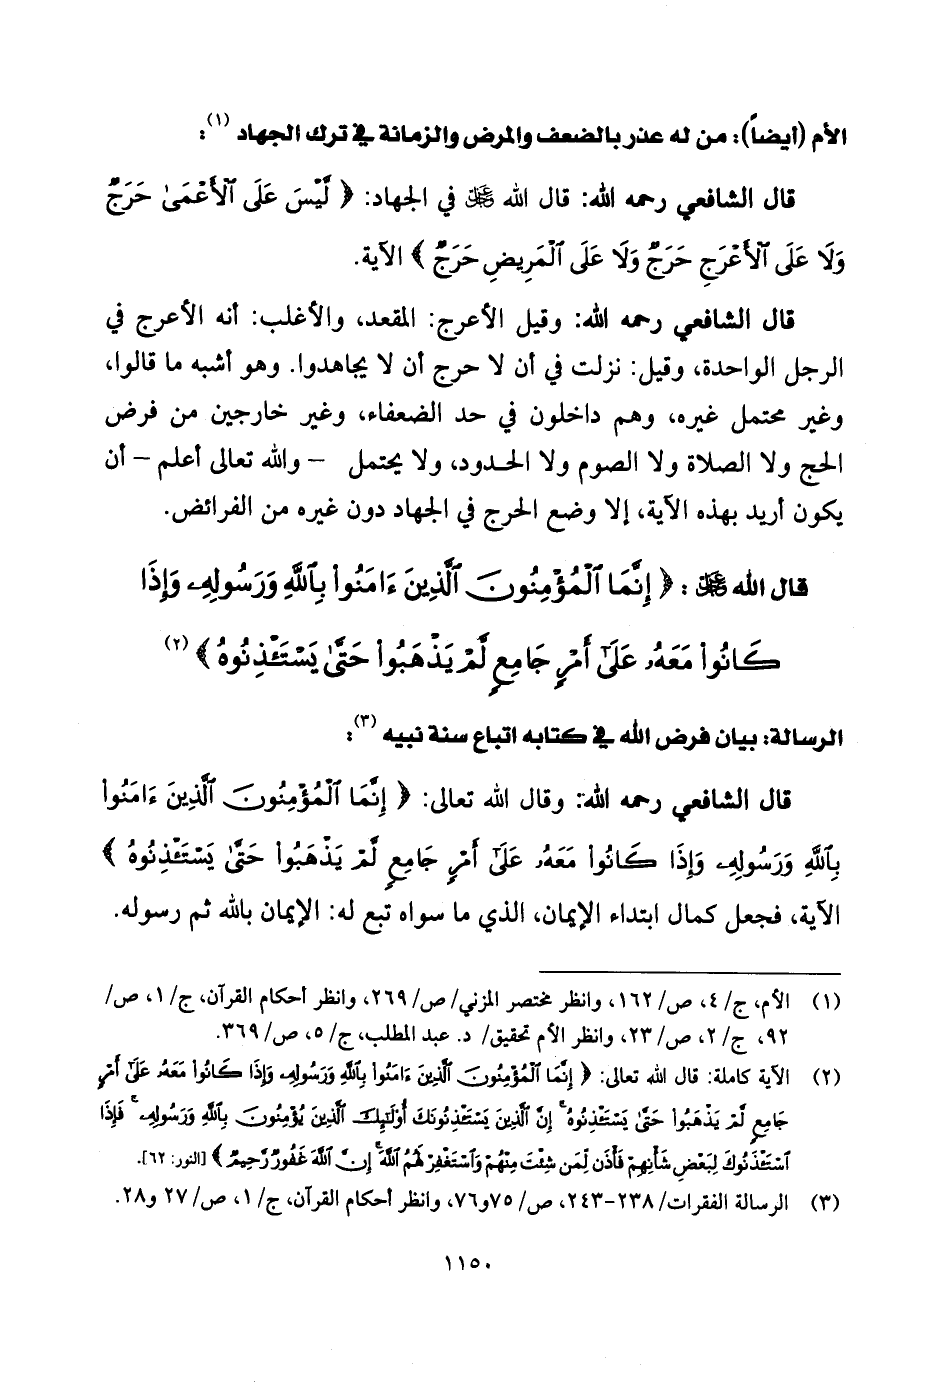 الأم (أيضاً): من له عذر بالضعف والمرض والزمانة في ترك الجهاد (١):
قال الشافعي رحمه الله: قال الله ﷻ في الجهاد: ﴿ لَّيْسَ عَلَى ٱلْأَعْمَىٰ حَرَجٌ
وَلَا عَلَى ٱلْأَعْرَجِ حَرَجٌ وَلَا عَلَى ٱلْمَرِيضِ حَرَجٌ ﴾ الآية.
قال الشافعي رحمه الله: وقيل الأعرج: المقعد، والأغلب: أنه الأعرج في
الرجل الواحدة، وقيل: نزلت في أن لا حرج أن لا يجاهدوا. وهو أشبه ما قالوا،
وغير محتمل غيره، وهم داخلون في حد الضعفاء، وغير خارجين من فرض
الحج ولا الصلاة ولا الصوم ولا الحدود، ولا يحتمل – والله تعالى أعلم – أن
يكون أريد بهذه الآية، إلا وضع الحرج في الجهاد دون غيره من الفرائض.
قال الله ﷻ : ﴿ إِنَّمَا ٱلْمُؤْمِنُونَ ٱلَّذِينَ ءَامَنُوا۟ بِٱللَّهِ وَرَسُولِهِۦ وَإِذَا
كَانُوا۟ مَعَهُۥ عَلَىٰٓ أَمْرٍ جَامِعٍ لَّمْ يَذْهَبُوا۟ حَتَّىٰ يَسْتَـْٔذِنُوهُ ﴾ (٢)
الرسالة: بيان فرض الله في كتابه اتباع سنة نبيه (٣):
قال الشافعي رحمه الله: وقال الله تعالى: ﴿ إِنَّمَا ٱلْمُؤْمِنُونَ ٱلَّذِينَ ءَامَنُوا۟
بِٱللَّهِ وَرَسُولِهِۦ وَإِذَا كَانُوا۟ مَعَهُۥ عَلَىٰٓ أَمْرٍ جَامِعٍ لَّمْ يَذْهَبُوا۟ حَتَّىٰ يَسْتَـْٔذِنُوهُ ﴾
الآية، فجعل كمال ابتداء الإيمان، الذي ما سواه تبع له: الإيمان بالله ثم رسوله.
(١) الأم، ج/ ٤، ص/ ١٦٢، وانظر مختصر المزني/ ص/ ٢٦٩، وانظر أحكام القرآن، ج/ ١، ص/
٩٢، ج/ ٢، ص/ ٢٣، وانظر الأم تحقيق/ د. عبد المطلب، ج/ ٥، ص/ ٣٦٩.
(٢) الآية كاملة: قال الله تعالى: ﴿ إِنَّمَا ٱلْمُؤْمِنُونَ ٱلَّذِينَ ءَامَنُوا۟ بِٱللَّهِ وَرَسُولِهِۦ وَإِذَا كَانُوا۟ مَعَهُۥ عَلَىٰٓ أَمْرٍ
جَامِعٍ لَّمْ يَذْهَبُوا۟ حَتَّىٰ يَسْتَـْٔذِنُوهُ ۚ إِنَّ ٱلَّذِينَ يَسْتَـْٔذِنُونَكَ أُو۟لَـٰٓئِكَ ٱلَّذِينَ يُؤْمِنُونَ بِٱللَّهِ وَرَسُولِهِۦ ۚ فَإِذَا
ٱسْتَـْٔذَنُوكَ لِبَعْضِ شَأْنِهِمْ فَأْذَن لِّمَن شِئْتَ مِنْهُمْ وَٱسْتَغْفِرْ لَهُمُ ٱللَّهَ ۚ إِنَّ ٱللَّهَ غَفُورٌ رَّحِيمٌ ﴾ [النور: ٦٢].
(٣) الرسالة الفقرات/ ٢٣٨-٢٤٣، ص/ ٧٥و٧٦، وانظر أحكام القرآن، ج/ ١، ص/ ٢٧ و٢٨.
١١٥٠